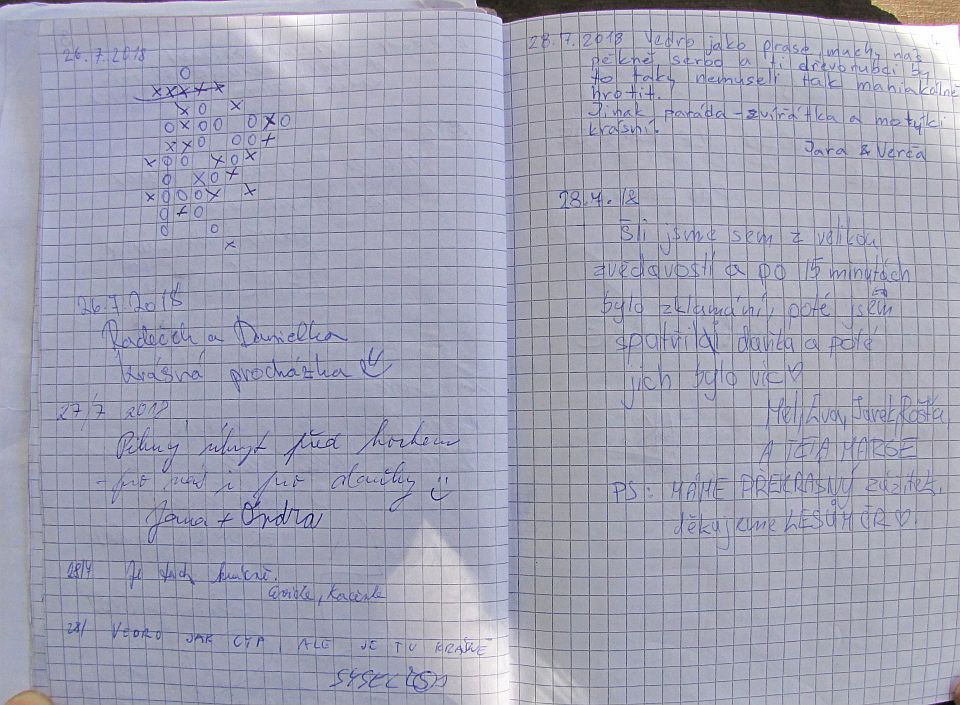 26.7.2018
O
XXXXX
XO X
OXOO OXO
XXO OOX
XOO XOX
O XOX
XOOOX X
OXO
O O
X
26.7 2018
Radeček a Danielka
krásná procházka
27/7 2018
Pěkný úkryt před horkem
- pro nás i pro daňky
Jana + Ondra
28/7 Je tach
28/ VEDRO JAK CYP, ALE JE TU KRÁSNĚ
28.7.2018 Vedro jako prase, mucky nás
pěkně serbo a ti dřevorubci by
to taky nemuseli tak maniakálně
hrotit.
Jinak paráda - zvířátka a motýlci
krásní.
Jara & Verča
28.7.18
Šli jsme sem z velikou
zvědavostí a po 15 minutách
bylo zklamání, poté jsem
spatřila daňka a poté
jich bylo víc ♡
Mel, Eva, Jarek, Rosťa,
A TETA
PS: MÁME PŘEKRÁSNÝ zážitek,
děkujeme LESŮM ČR ♡.